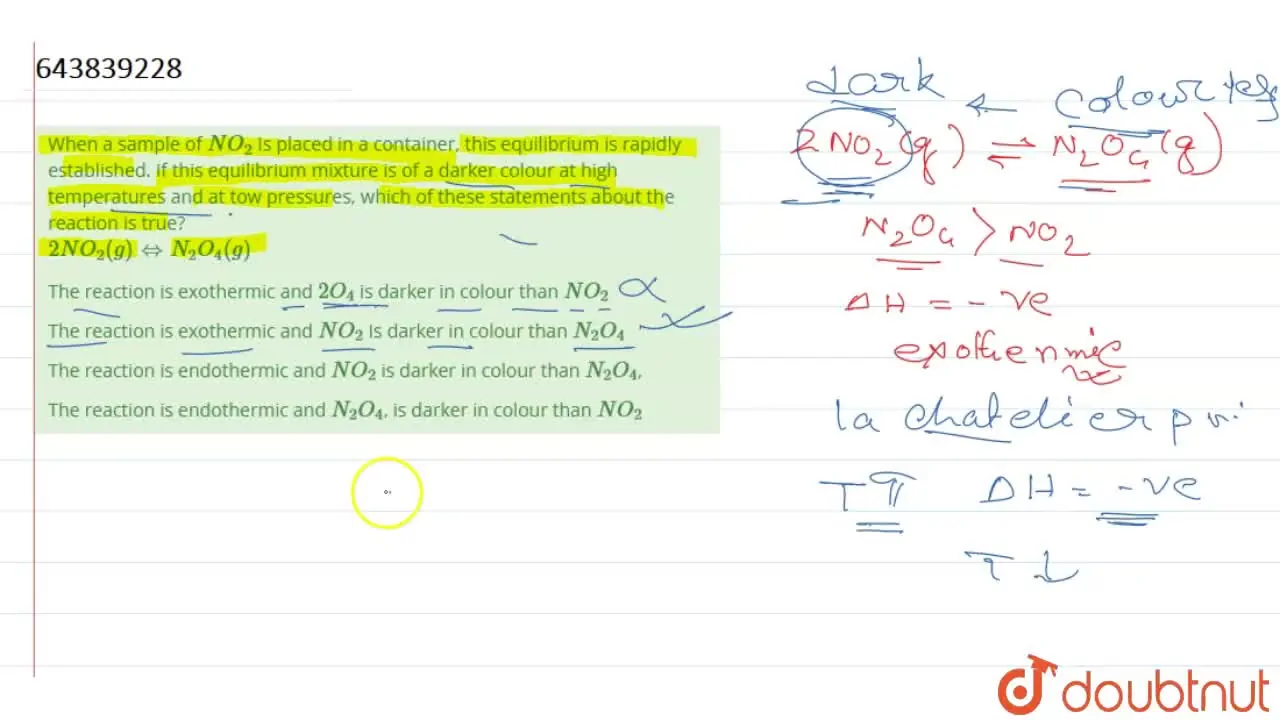 643839228
When a sample of NO2 Is placed in a container, this equilibrium is rapidly
established. if this equilibrium mixture is of a darker colour at high
temperatures and at tow pressures, which of these statements about the
reaction is true?
2NO2(g) ⇔ N2O4(g)
The reaction is exothermic and 2O4 is darker in colour than NO2
The reaction is exothermic and NO2 Is darker in colour than N2O4
The reaction is endothermic and NO2 is darker in colour than N2O4,
The reaction is endothermic and N2O4, is darker in colour than NO2
dark ← colourless
2NO2(g) ⇌ N2O4(g)
N2O4 > NO2
ΔH = -ve
exothermic
la chatelier pri.
T↑ ΔH = -ve
T↓
doubtnut